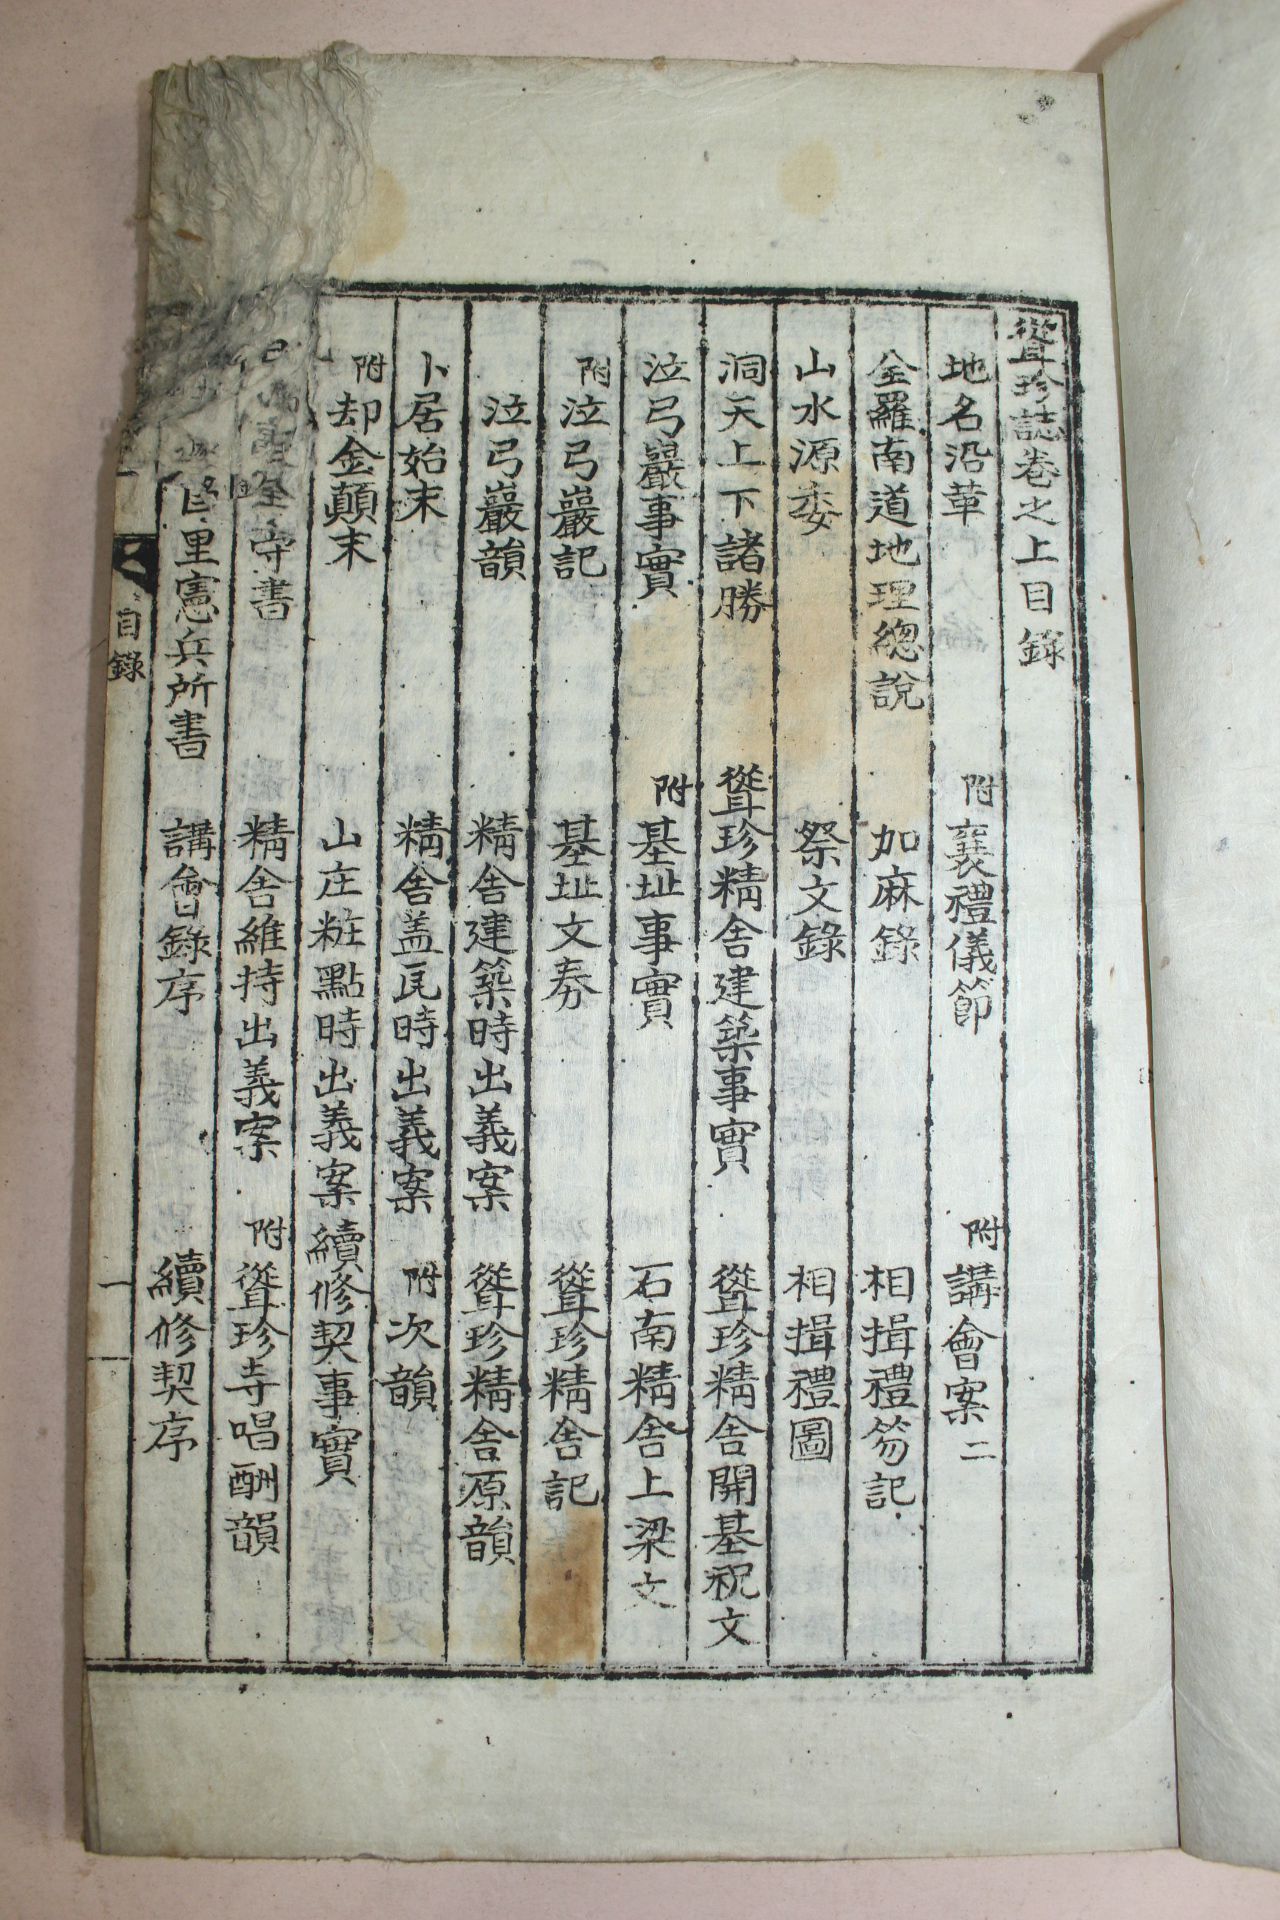 聳珍誌卷之上目錄
地名沿革 附襄禮儀節 附講會案二
全羅南道地理總說 加麻錄 相揖禮笏記
山水源委 祭文錄 相揖禮圖
洞天上下諸勝 聳珍精舍建築事實 聳珍精舍開基祝文
泣弓巖事實 附基址事實 石南精舍上梁文
附泣弓巖記 基址文券 聳珍精舍記
泣弓巖韻 精舍建築時出義案 聳珍精舍原韻
卜居始末 精舍盖瓦時出義案 附次韻
附却金顛末 山庄粧點時出義案 續修契事實
守書 精舍維持出義案 附聳珍寺唱酬韻
里憲兵所書 講會錄序 續修契序
目錄 一